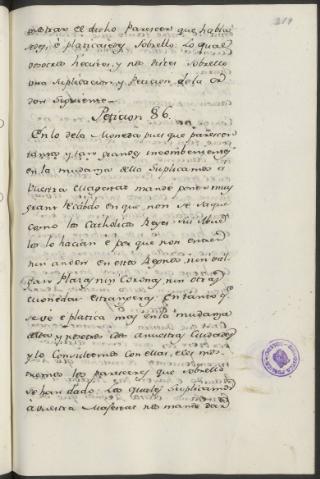 219
mostrar el dicho parescer que habia
des, e platicaredes sobrello. Lo qual
nos nos
una suplicacion, y Peticion de la or
den siguiente
Peticion 86.
En lo de la Moneda pues que parescen
tantos y tan grandes incombenientes
en la mudanza della Suplicamos a
Vuestra Magestad mande poner muy
gran recabdo en que non se saque
como los Catholicos Reyes
los lo hacian e por que non entren
nin anden en estos Reynos nin
gan Placas nin Coronas nin otras
monedas estrangeras. En tanto q.e
se vé e platica mas en la mudanza
della, y
y lo Consultemos con ellas, e les mos
tremos los paresceres que sobrello
se han dado. Los quales Suplicamos
a Vuestra Magestad nos mande dar